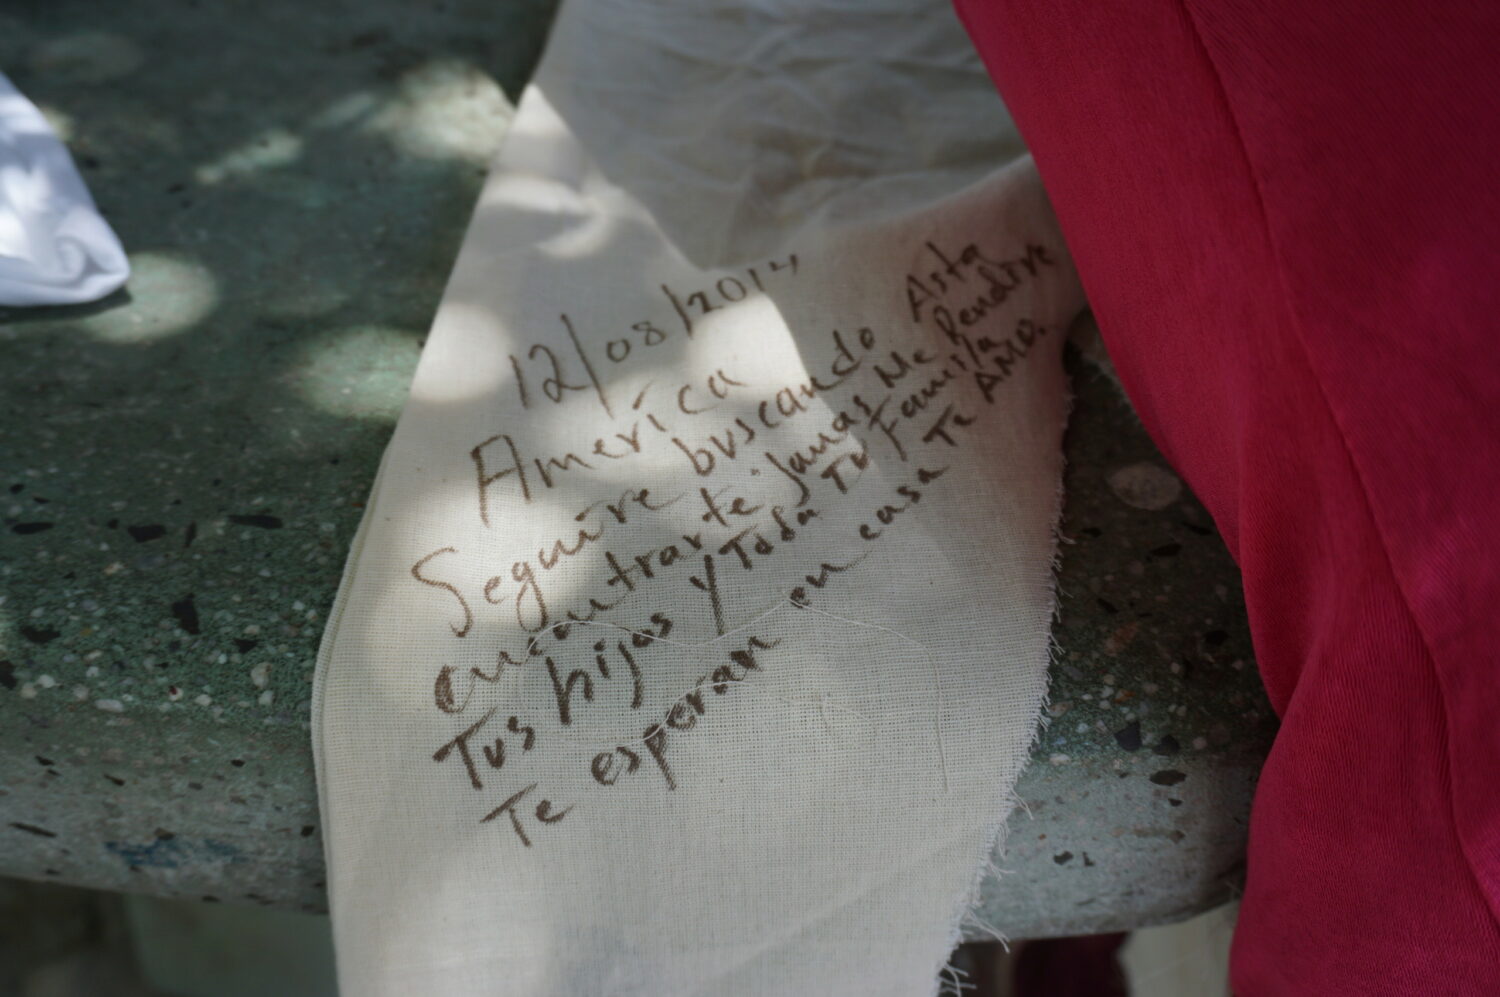 12/08/2014
América
Seguire buscando Asta
encontrarte jamas Me Rendire
Tus hijos y Toda Tu Familia
Te esperan en casa Te AMO.